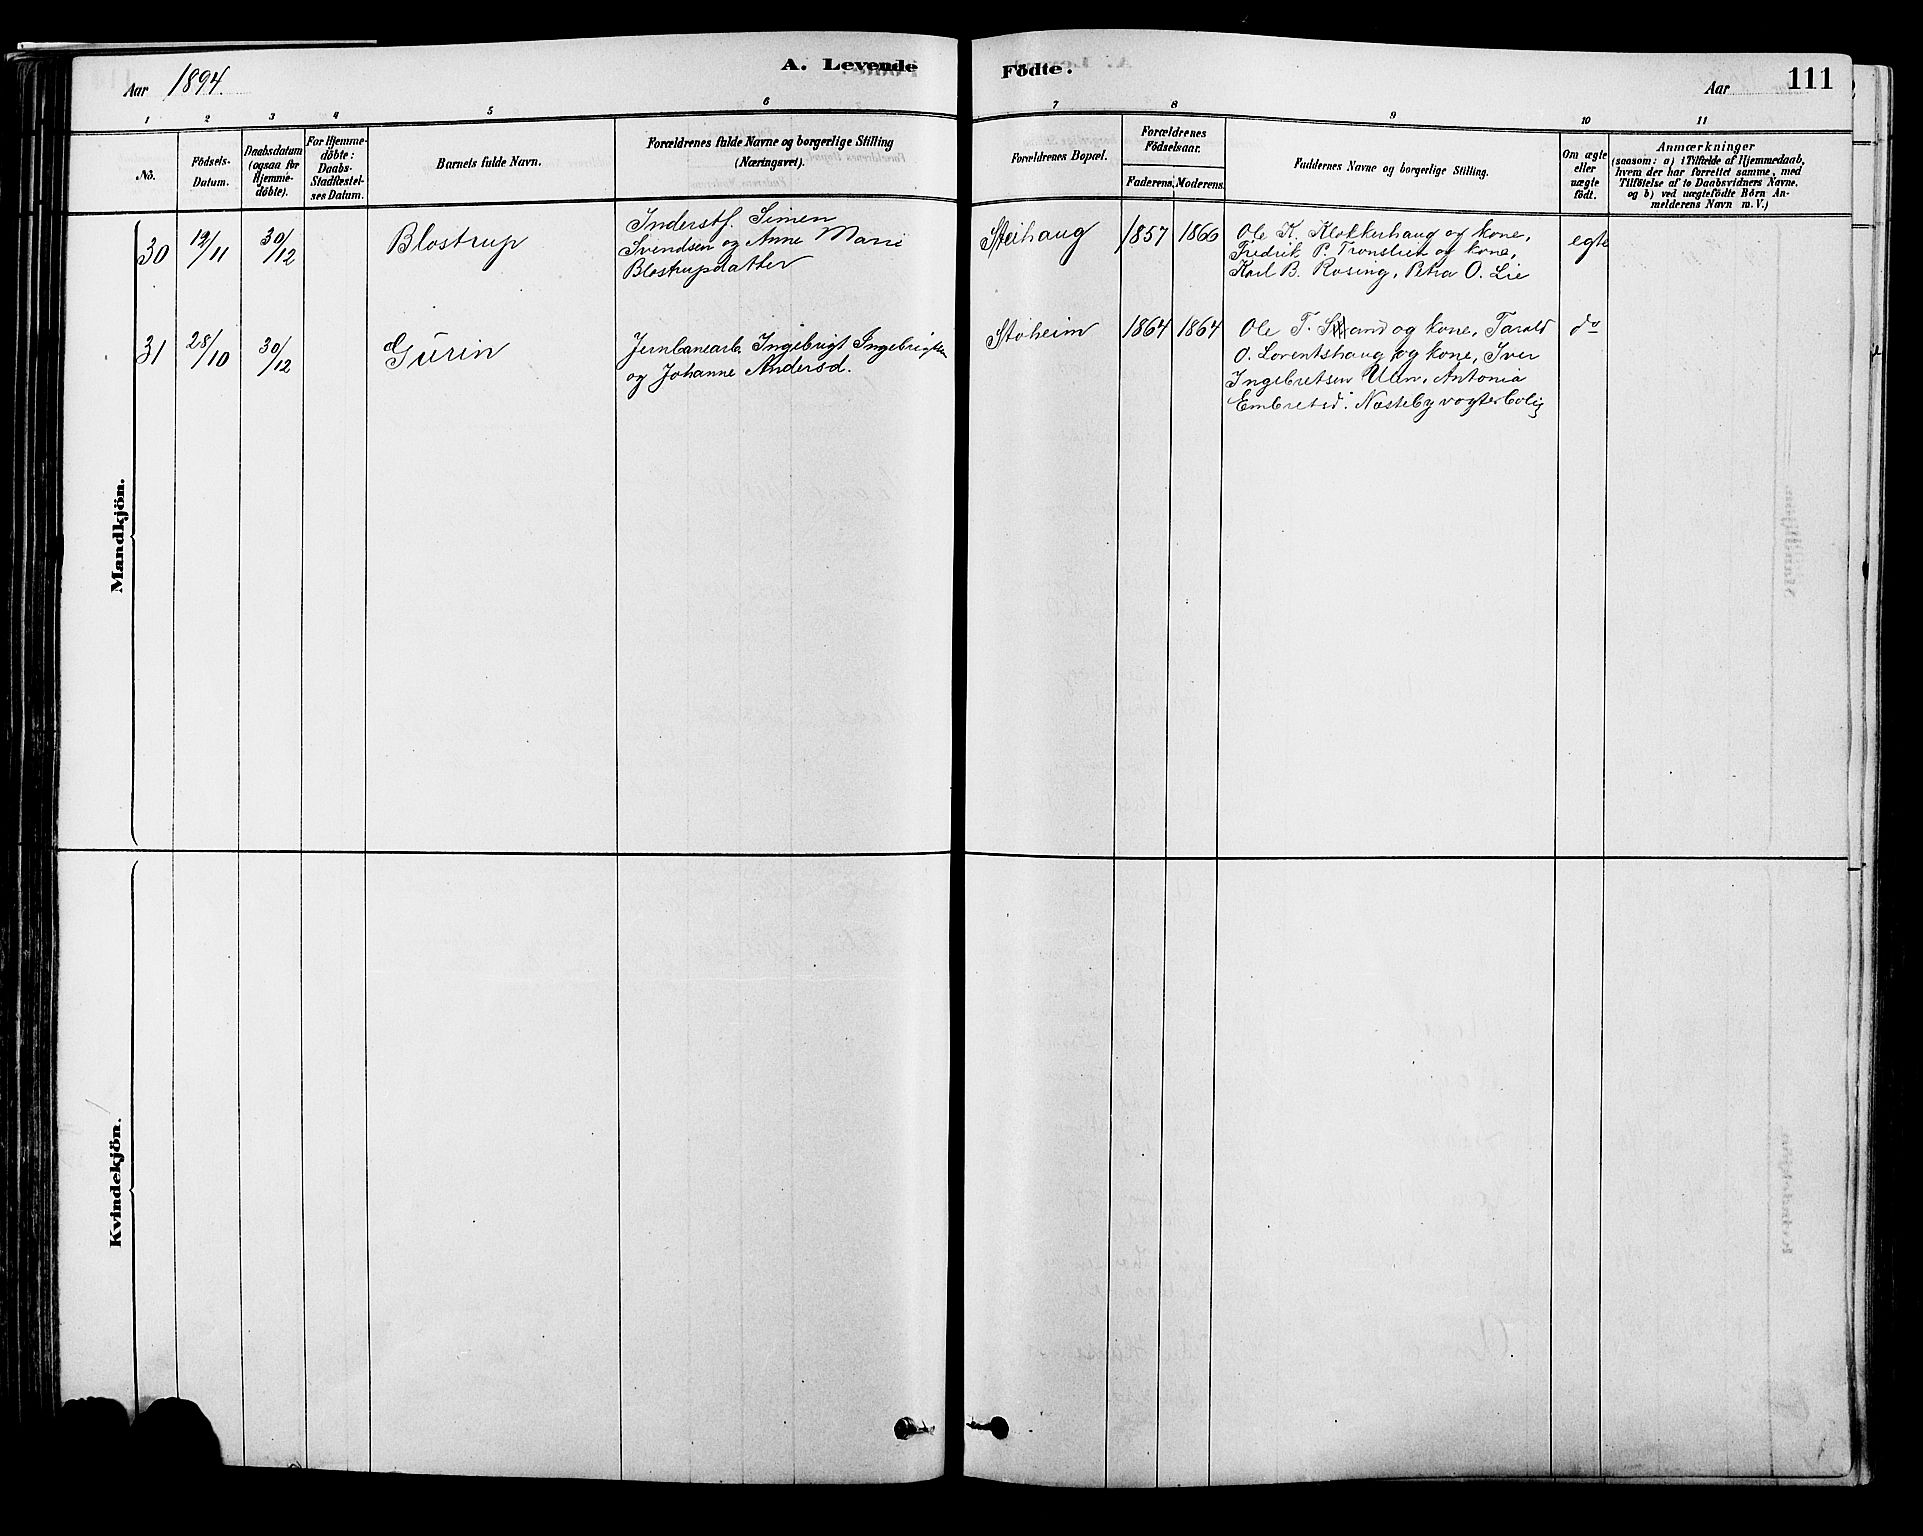 A. Levende Födte.
Aar 1894.
Aar 111
1 2 3 4 5 6 7 8 9 10 11
No.
Födsels-Datum.
Daabsdatum (ogsaa for Hjemme-döbte).
For Hjemme-döbte: Daabs-Stadfæstel-ses Datum.
Barnets fulde Navn.
Forældrenes fulde Navne og borgerlige Stilling (Næringsvei).
Forældrenes Bopæl.
Forældrenes Födselsaar.
Faderens. Moderens.
Faddernes Navne og borgerlige Stilling.
Om ægte eller uægte födt.
Anmærkninger
(saasom: a) i Tilfælde af Hjemmedaab,
hvem der har forrettet samme, med
Tilföielse af to Daabsvidners Navne,
og b) ved uægtefödte Börn An-
melderens Navn m. V.)
Mandkjön.
30 12/11 30/12 Blostrup
Inderstf. Simen
Svendsen og Anne Marie
Blostrupdatter
Steihaug 1857 1866
Ole K. Klokkerhaug og kone,
Fredrik P. Tronslien og kone,
Karl B. Rosing, Petra O. Lie
egte
31 28/10 30/12 Gurin
Jernbanearb. Ingebrigt Ingebrigtsen
og Johanne Andersd.
Stoheim 1864 1864
Ole T. Strand og kone, Tarald
O. Lorentshaug og kone, Iver
Ingebretsen Uen, Antonia
Embretsd. Næsteby vogterbolig
do
Kvindekjön.